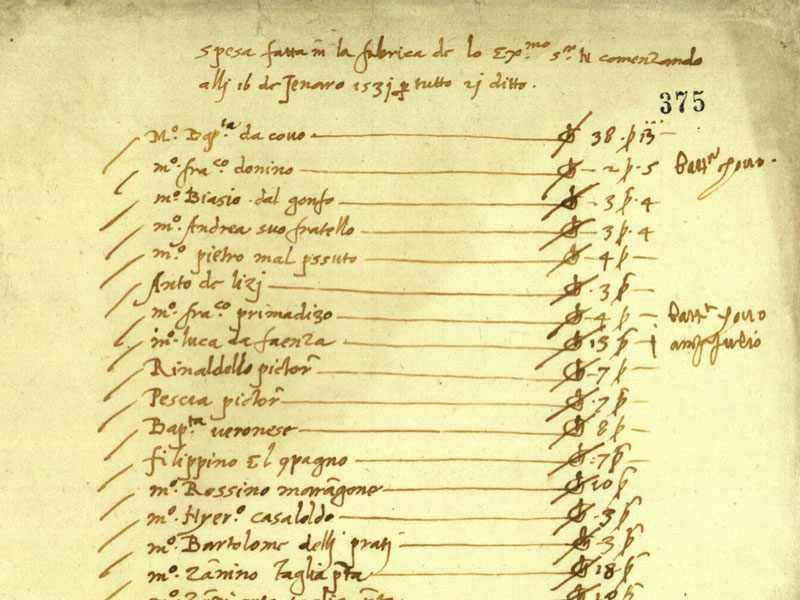 spesa fatta in la fabrica de lo Ex.mo s.r N comenzando
alli 16 de Jenaro 1531 p tutto 21 ditto.
375
M.o Bap.ta da covo 38 13
m.o fra.co donino 2 5
m.o Biasio dal gonfo 3 4
m.o Andrea suo fratello 3 4
m.o pietro mal pssuto 4
Anto de lizj 3
m.o fra.co primadizo 4
m.o luca da faenza 15
Rinaldello pictor 7
Pescia pictor 7
Bap.ta veronese 8
filippino El 9pagno 7
m.o Rossino marãgone 10
m.o Hyer.o casaloldo 3
m.o Bartolome delli pratj 3
m.o Zãnino taglia pta 18